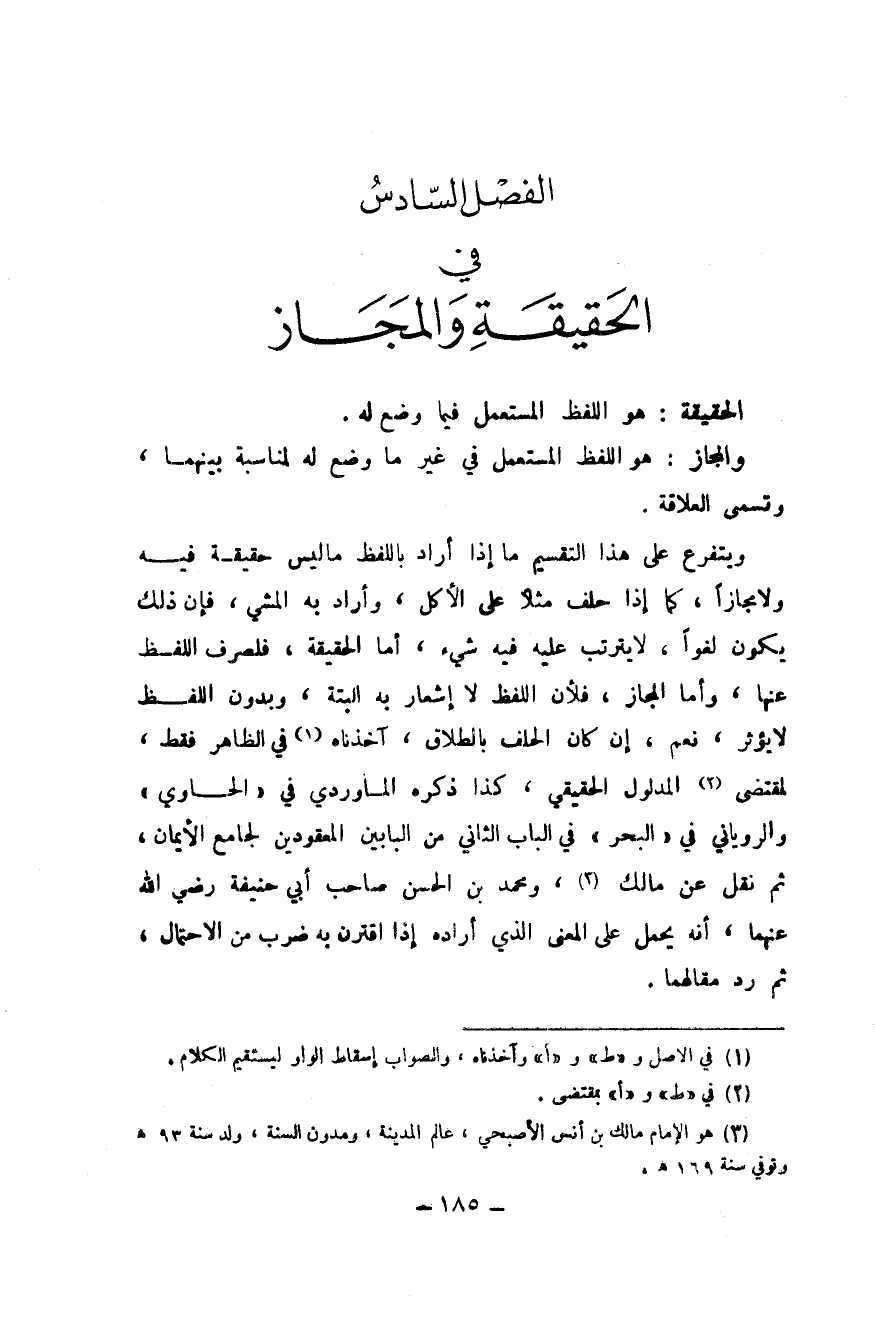 الفصل السادس
في
الحقيقة والمجاز
الحقيقة : هو اللفظ المستعمل فيما وضع له .
والمجاز : هو اللفظ المستعمل في غير ما وضع له لمناسبة بينهما ،
وتسمى العلاقة .
ويتفرع على هذا التقسيم ما إذا أراد باللفظ ماليس حقيقة فيه
ولامجازاً ، كما إذا حلف مثلاً على الأكل ، وأراد به المشي ، فإن ذلك
يكون لغواً ، لايترتب عليه فيه شيء ، أما الحقيقة ، فلصرف اللفظ
عنها ، وأما المجاز ، فلأن اللفظ لا إشعار به البتة ، وبدون اللفظ
لايؤثر ، نعم ، إن كان الحلف بالطلاق ، آخذناه (١) في الظاهر فقط ،
لمقتضى (٢) المدلول الحقيقي ، كذا ذكره الماوردي في « الحاوي »
والروياني في « البحر » في الباب الثاني من البابين المعقودين لجامع الأيمان ،
ثم نقل عن مالك (٣) ، ومحمد بن الحسن صاحب أبي حنيفة رضي الله
عنهما ، أنه يحمل على المعنى الذي أراده إذا اقترن به ضرب من الاحتمال ،
ثم رد مقالهما .
(١) في الاصل و «ط» و «أ» وآخذناه ، والصواب إسقاط الواو ليستقيم الكلام .
(٢) في «ط» و «أ» بمقتضى .
(٣) هو الإمام مالك بن أنس الأصبحي ، عالم المدينة ، ومدون السنة ، ولد سنة ٩٣ ه
وتوفي سنة ١٦٩ ه .
– ١٨٥ –